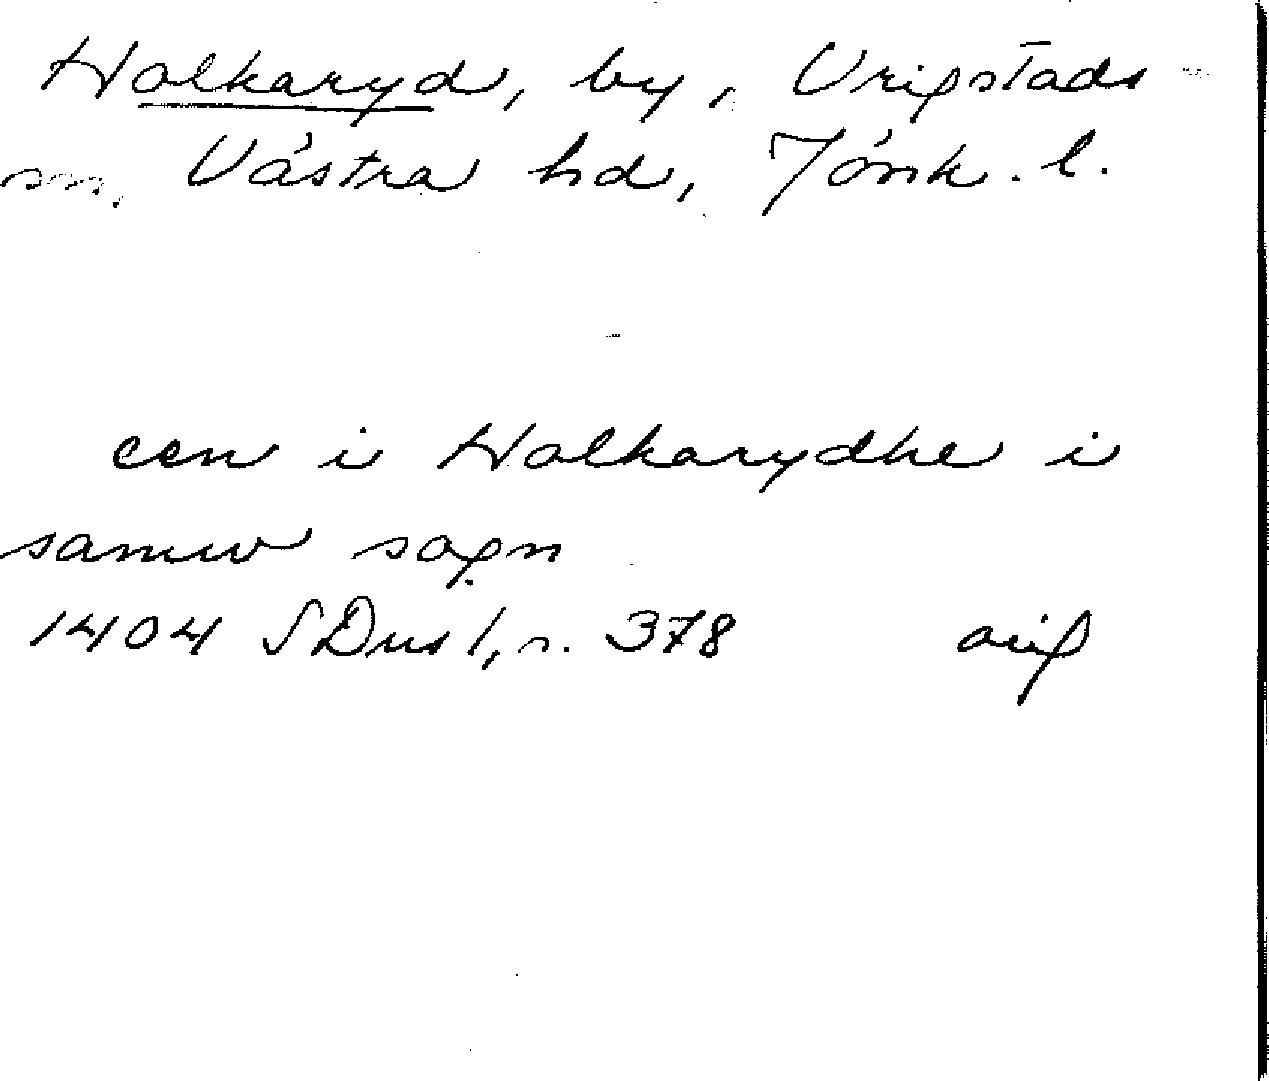 Holkaryd, by, Vrigstads
sn, Västra hd, Jönk. l.
een i Holkarydhe i
samw sogn
1404 SDns 1, s. 378 orig